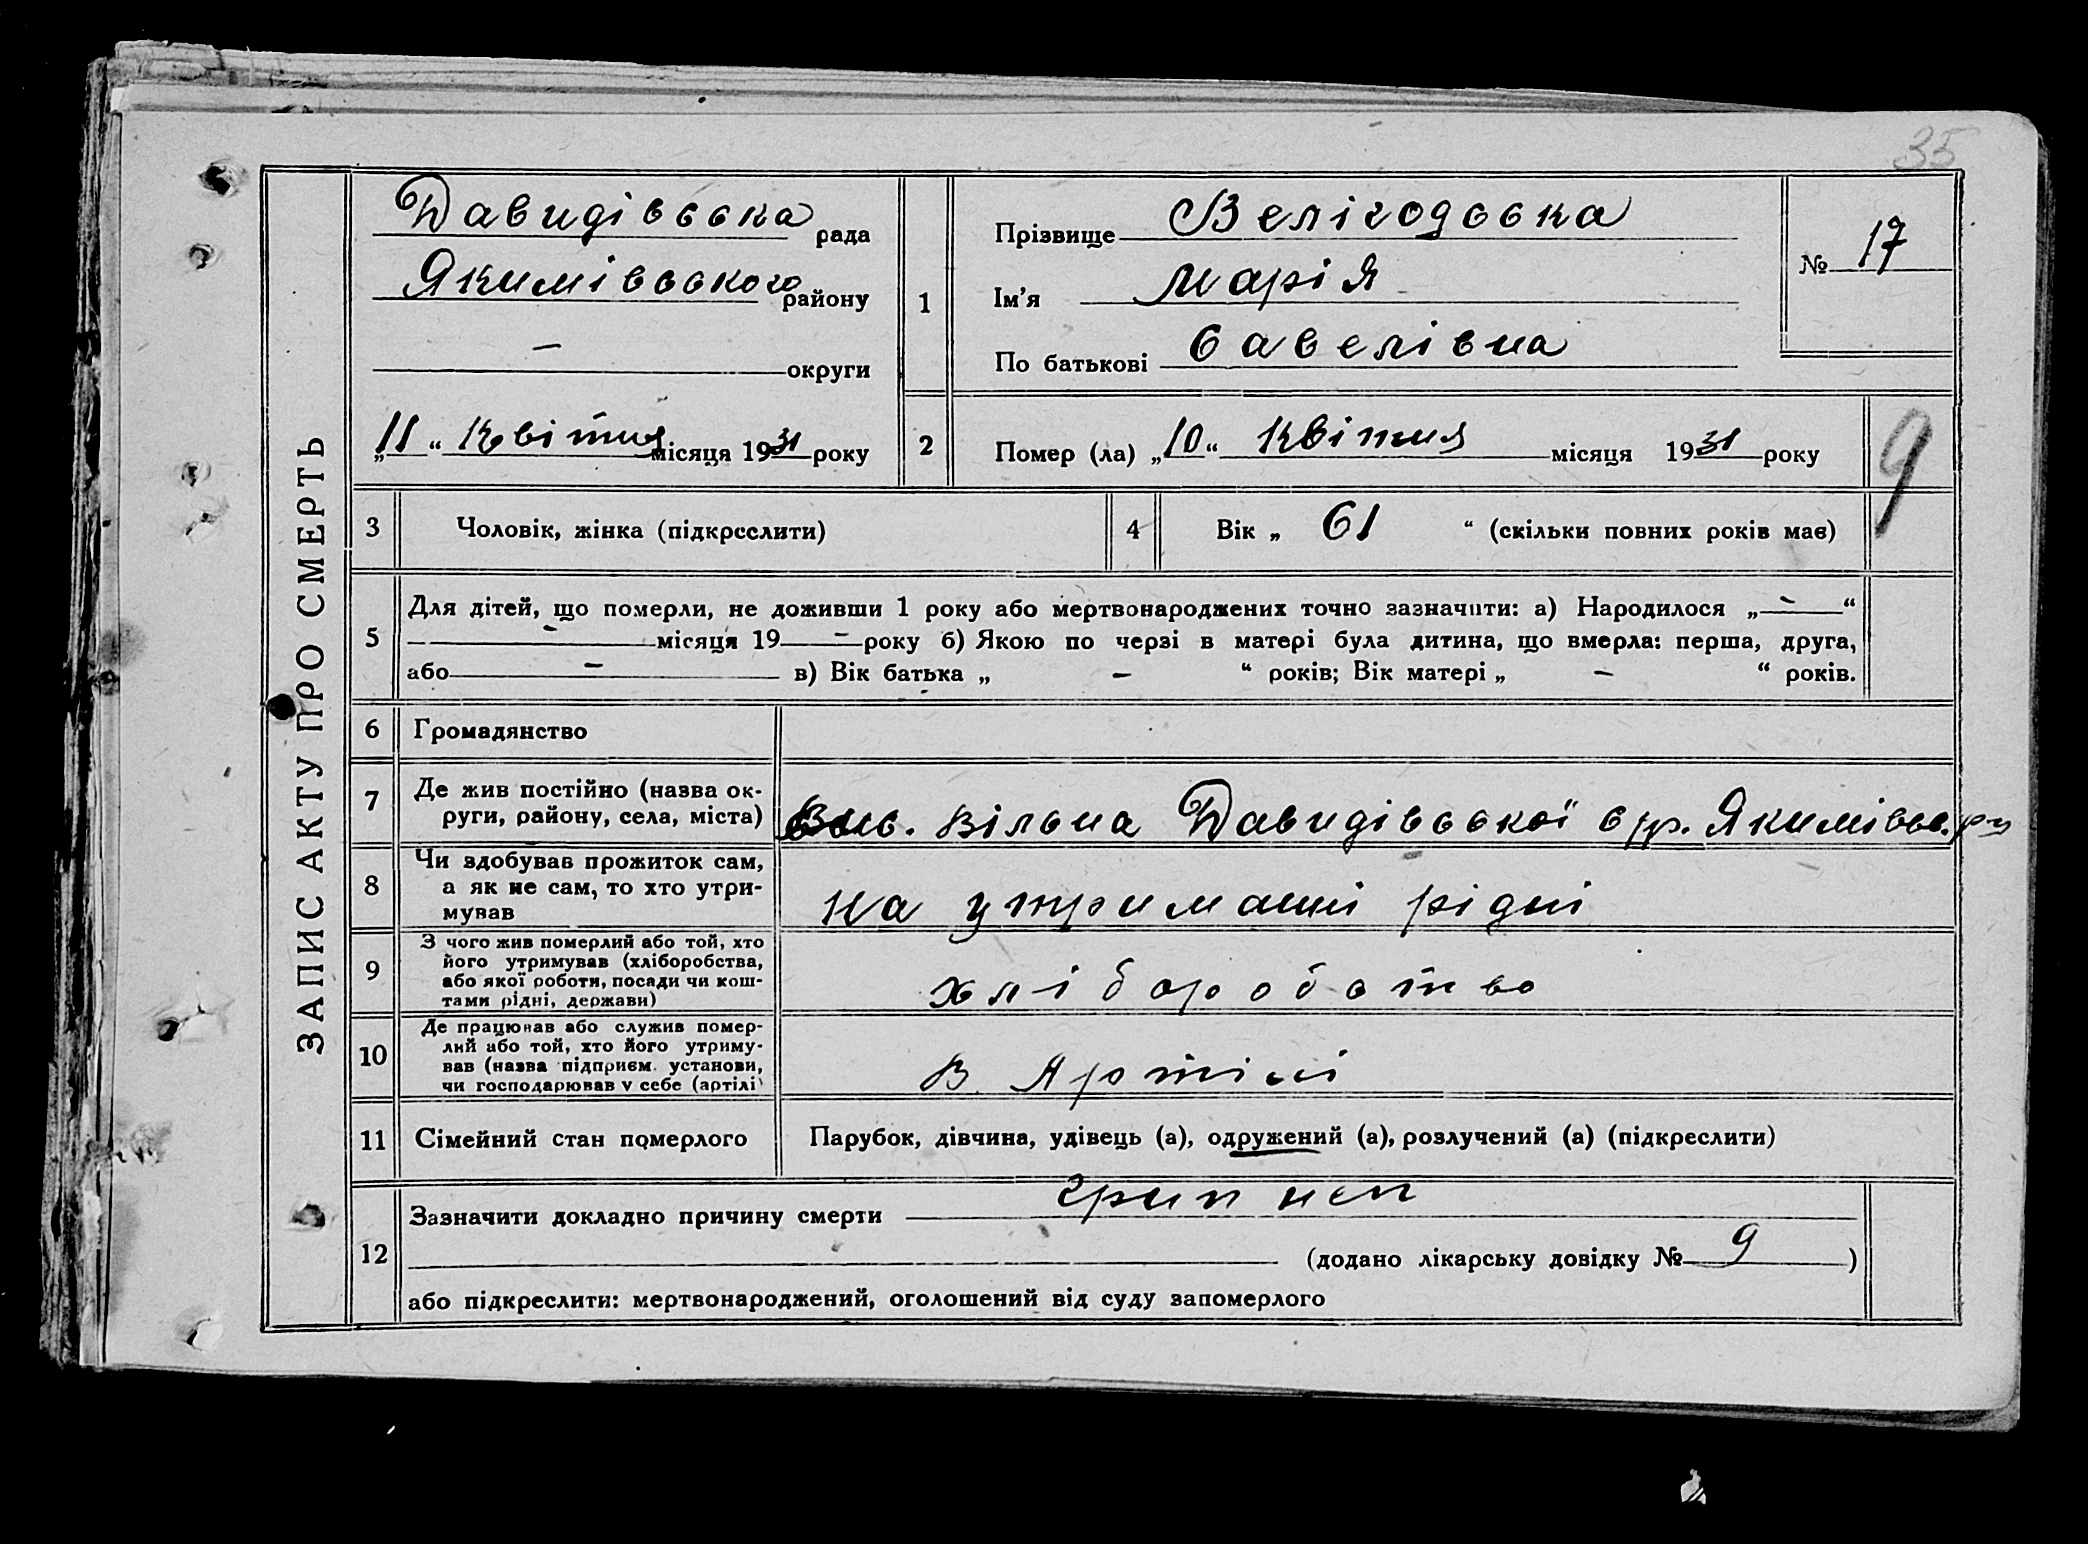 35
ЗАПИС АКТУ ПРО СМЕРТЬ
Давидівська рада
Якимівського району
— округи
„11“ Квітня місяця 1931 року
1
Прізвище Велігодська
Ім'я Марія
По батькові Савелівна
№ 17
2
Помер (ла) „10“ Квітня місяця 1931 року
9
3 Чоловік, жінка (підкреслити)
4 Вік „ 61 “ (скільки повних років має)
5
Для дітей, що померли, не доживши 1 року або мертвонароджених точно зазначити: а) Народилося „ — “
— місяця 19 — року б) Якою по черзі в матері була дитина, що вмерла: перша, друга,
або — в) Вік батька „ — “ років; Вік матері „ — “ років.
6 Громадянство
7
Де жив постійно (назва ок-
руги, району, села, міста)
вис. Вільна Давидівської с/р. Якимівськ. р-у
8
Чи здобував прожиток сам,
а як не сам, то хто утри-
мував
на утриманні рідні
9
З чого жив померлий або той, хто
його утримував (хліборобства,
або якої роботи, посади чи кош-
тами рідні, держави)
хліборобство
10
Де працював або служив помер-
лий або той, хто його утриму-
вав (назва підприєм. установи,
чи господарював у себе (артілі)
В Артілі
11 Сімейний стан померлого
Парубок, дівчина, удівець (а), одружений (а), розлучений (а) (підкреслити)
12
Зазначити докладно причину смерти грип
(додано лікарську довідку № 9 )
або підкреслити: мертвонароджений, оголошений від суду запомерлого